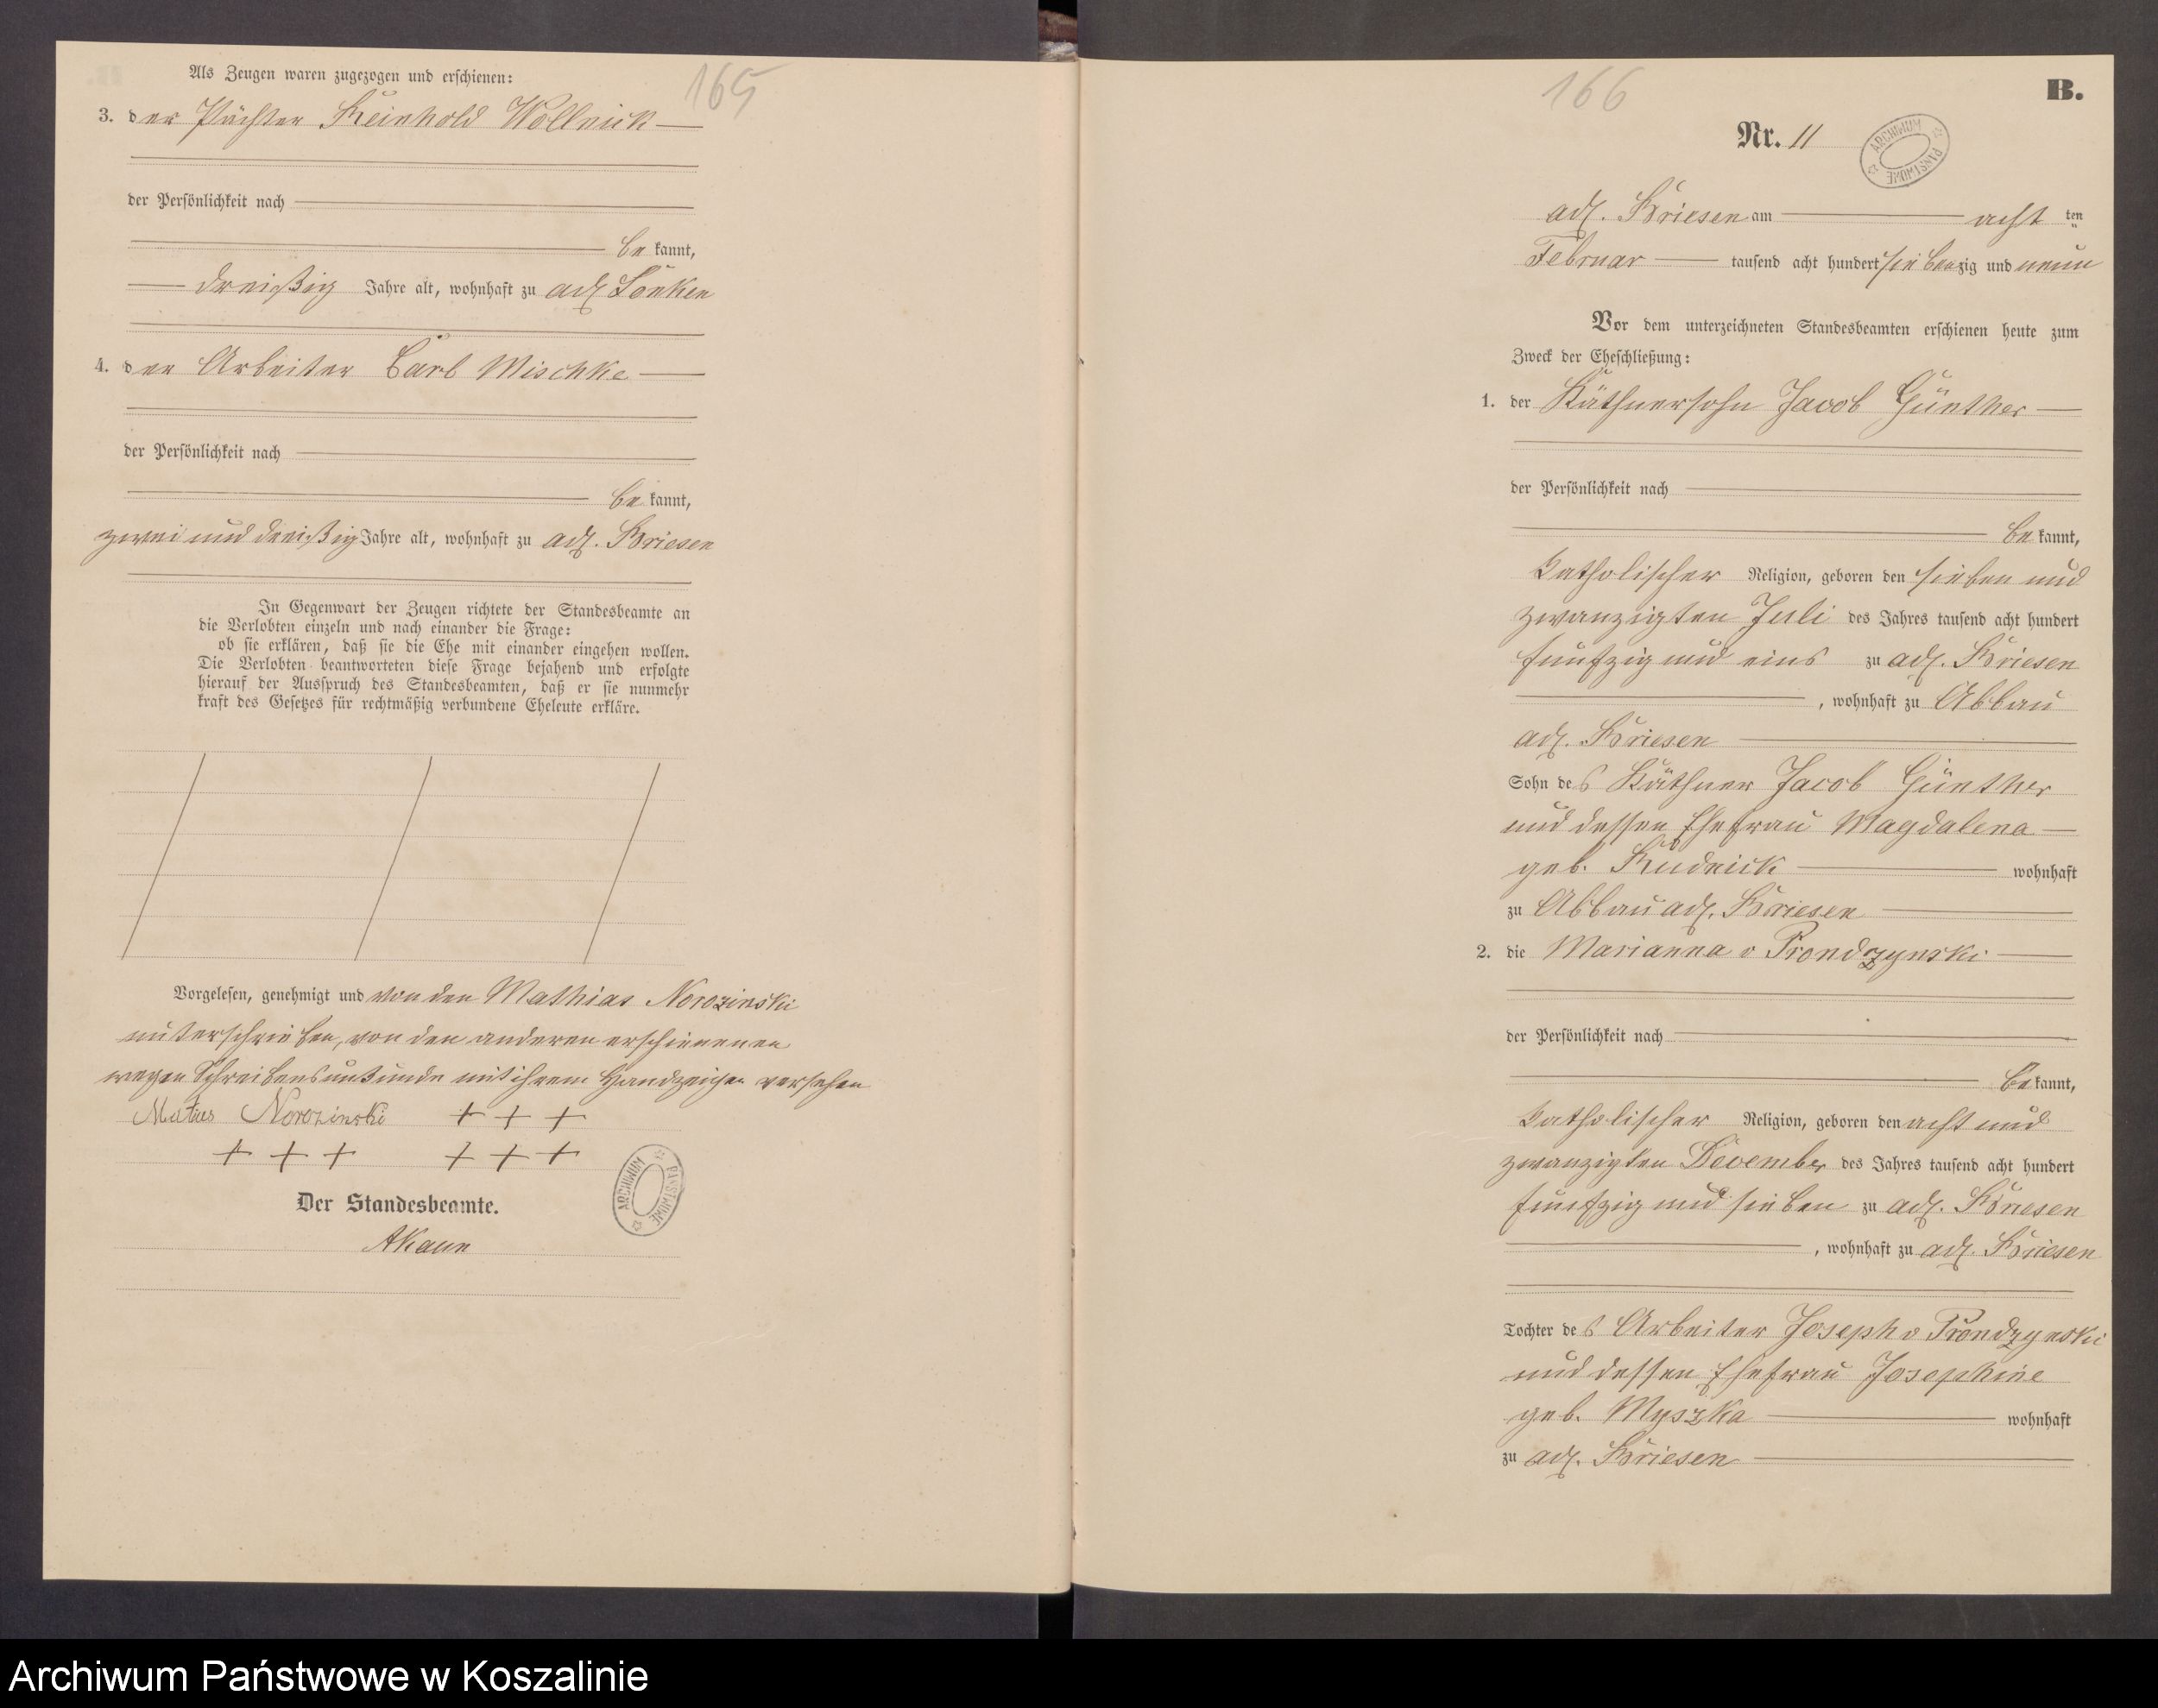 Als Zeugen waren zugezogen und erschienen:
165
3. der Pächter Reinhold Wollnick
der Persönlichkeit nach
be kannt,
dreißig Jahre alt, wohnhaft zu adl. Lonken
4. der Arbeiter Carl Mischke
der Persönlichkeit nach
be kannt,
zwei und dreißig Jahre alt, wohnhaft zu adl. Briesen
In Gegenwart der Zeugen richtete der Standesbeamte an
die Verlobten einzeln und nach einander die Frage:
ob sie erklären, daß sie die Ehe mit einander eingehen wollen.
Die Verlobten beantworteten diese Frage bejahend und erfolgte
hierauf der Ausspruch des Standesbeamten, daß er sie nunmehr
kraft des Gesetzes für rechtmäßig verbundene Eheleute erkläre.
Vorgelesen, genehmigt und von den Mathias Norozinski
unterschrieben, von den anderen erschienenen
wegen Schreibensunkunde mit ihrem Handzeichen versehen
Norozinski + + +
+ + + + + +
ARCHIWUM PAŃSTWOWE
Der Standesbeamte.
AKaun
166
B.
Nr. 11
ARCHIWUM PAŃSTWOWE
adl. Briesen am acht ten
Februar tausend acht hundert siebenzig und neun
Vor dem unterzeichneten Standesbeamten erschienen heute zum
Zweck der Eheschließung:
1. der Käthnersohn Jacob Günther
der Persönlichkeit nach
be kannt,
katholischer Religion, geboren den sieben und
zwanzigten Juli des Jahres tausend acht hundert
funfzig und eins zu adl. Briesen
, wohnhaft zu Abbau
adl. Briesen
Sohn des Käthner Jacob Günther
und dessen Ehefrau Magdalena
geb. Rudnick wohnhaft
zu Abbau adl. Briesen
2. die Marianna v Prondzynski
der Persönlichkeit nach
be kannt,
katholischer Religion, geboren den acht und
zwanzigten December des Jahres tausend acht hundert
funfzig und sieben zu adl. Briesen
, wohnhaft zu adl. Briesen
Tochter des Arbeiter Joseph v Prondzynski
und dessen Ehefrau Josephine
geb. Myszka wohnhaft
zu adl. Briesen
Archiwum Państwowe w Koszalinie